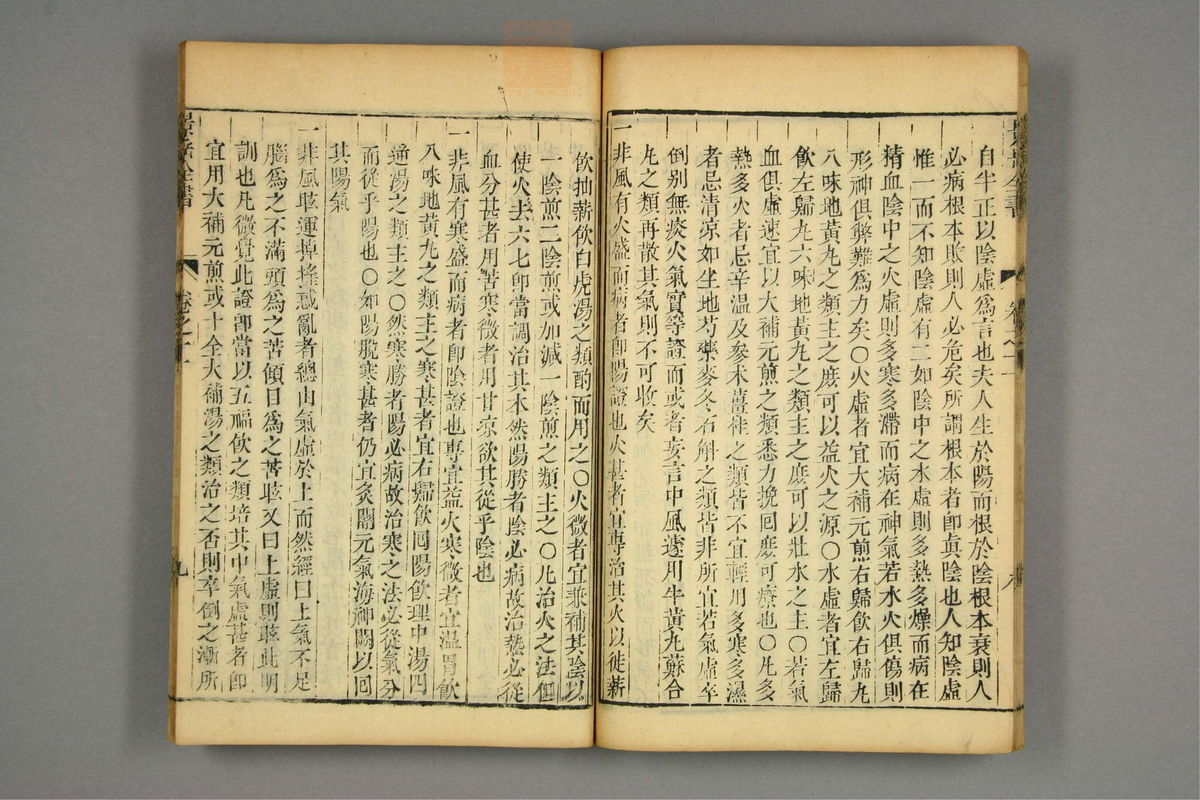 自半正以陰虛爲言也夫人生於陽而根於陰根本衰則人
必病根本敗則人必危矣所謂根本者卽眞陰也人知陰虛
惟一而不知陰虛有二如陰中之水虛則多熱多燥而病在
精血陰中之火虛則多寒多滯而病在神氣若水火俱傷則
形神俱弊難爲力矣〇火虛者宜大補元煎右歸飲右歸丸
八味地黃丸之類主之庶可以益火之源〇水虛者宜左歸
飲左歸丸六味地黃丸之類主之庶可以壯水之主〇若氣
血俱虛速宜以大補元煎之類悉力挽回庶可療也〇凡多
熱多火者忌辛温及參朮薑桂之類皆不宜輕用多寒多濕
者忌清涼如生地芍藥麥冬石斛之類皆非所宜若氣虛卒
倒别無痰火氣實等證而或者妄言中風遽用牛黃丸蘇合
丸之類再散其氣則不可收矣
一非風有火盛而病者卽陽證也火甚者宜專治其火以徙薪
飲抽薪飲白虎湯之類酌而用之〇火微者宜兼補其陰以
一陰煎二陰煎或加減一陰煎之類主之〇凡治火之法但
使火去六七卽當調治其本然陽勝者陰必病故治熱必從
血分甚者用苦寒微者用甘涼欲其從乎陰也
一非風有寒盛而病者卽陰證也專宜益火寒微者宜温胃飲
八味地黃丸之類主之寒甚者宜右歸飲囘陽飲理中湯四
逆湯之類主之〇然寒勝者陽必病故治寒之法必從氣分
而從乎陽也〇如陽脫寒甚者仍宜灸關元氣海神闕以囘
其陽氣
一非風眩運掉搖惑亂者總由氣虛於上而然經曰上氣不足
腦爲之不滿頭爲之苦傾目爲之苦眩又曰上虛則眩此明
訓也凡微覺此證卽當以五福飲之類培其中氣虛甚者卽
宜用大補元煎或十全大補湯之類治之否則卒倒之漸所
景岳全書
卷之十一
九